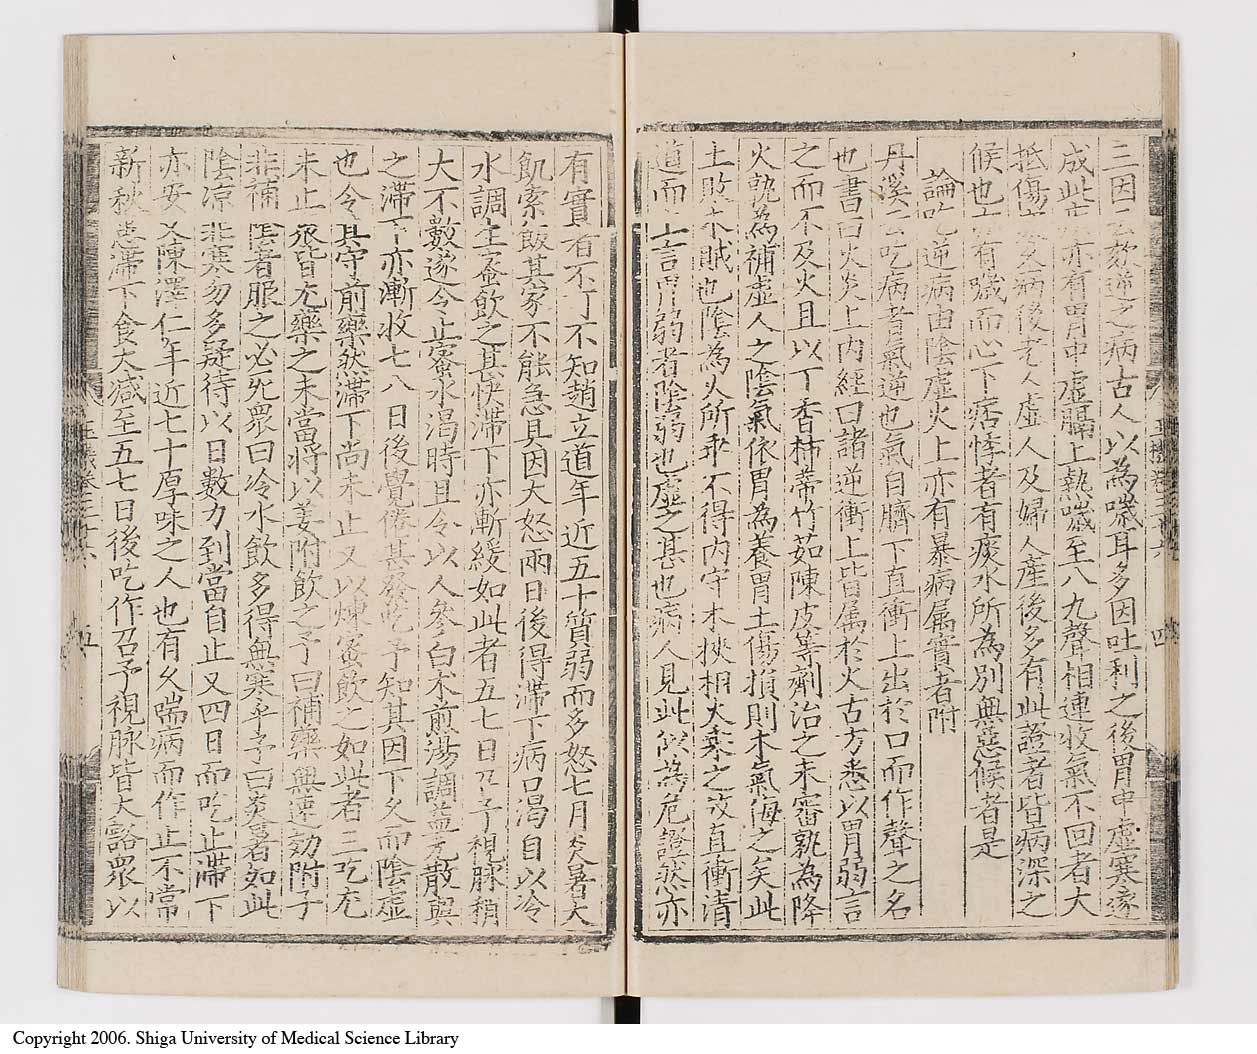 三因云欬逆之病古人以為噦耳多因吐利之後胃中虛寒遂
成此亦有胃中虛膈上熱噦至八九聲相連收氣不回者大
抵傷久病後老人虛人及婦人產後多有此證者皆病深之
候也有噦而心下痞悸者有痰水所為別無惡候者是
論吃逆病由陰虛火上亦有暴病屬實者附
丹溪云吃病者氣逆也氣自臍下直衝上出於口而作聲之名
也書曰火炎上內經曰諸逆衝上皆屬於火古方悉以胃弱言
之而不及火且以丁香柿蒂竹茹陳皮等劑治之未審孰為降
火孰為補虛人之陰氣依胃為養胃土傷損則木氣侮之矣此
土敗木賊也陰為火所乘不得內守木挾相火乘之故直衝清
道而上言胃弱者陰弱也虛之甚也病人見此似為危證然亦
王機卷三十六 四
有實者不可不知趙立道年近五十質弱而多怒七月炎暑大
飢索飯其家不能急具因大怒兩日後得滯下病口渴自以冷
水調生蜜飲之甚快滯下亦漸緩如此者五七日召予視脉稍
大不數遂令止蜜水渴時且令以人參白朮煎湯調益元散與
之滯下亦漸收七八日後覺倦甚發吃予知其因下久而陰虛
也令其守前藥然滯下尚未止又以煉蜜飲之如此者三吃尤
未止衆皆尤藥之未當將以姜附飲之予曰補藥無速効附子
非補陰者服之必死衆曰冷水飲多得無寒乎予曰炎暑如此
陰凉非寒勿多疑待以日數力到當自止又四日而吃止滯下
亦安又陳澤仁年近七十厚味之人也有久喘病而作止不常
新秋患滯下食大减至五七日後吃作召予視脉皆大豁衆以
王機卷三十六 五
Copyright 2006. Shiga University of Medical Science Library